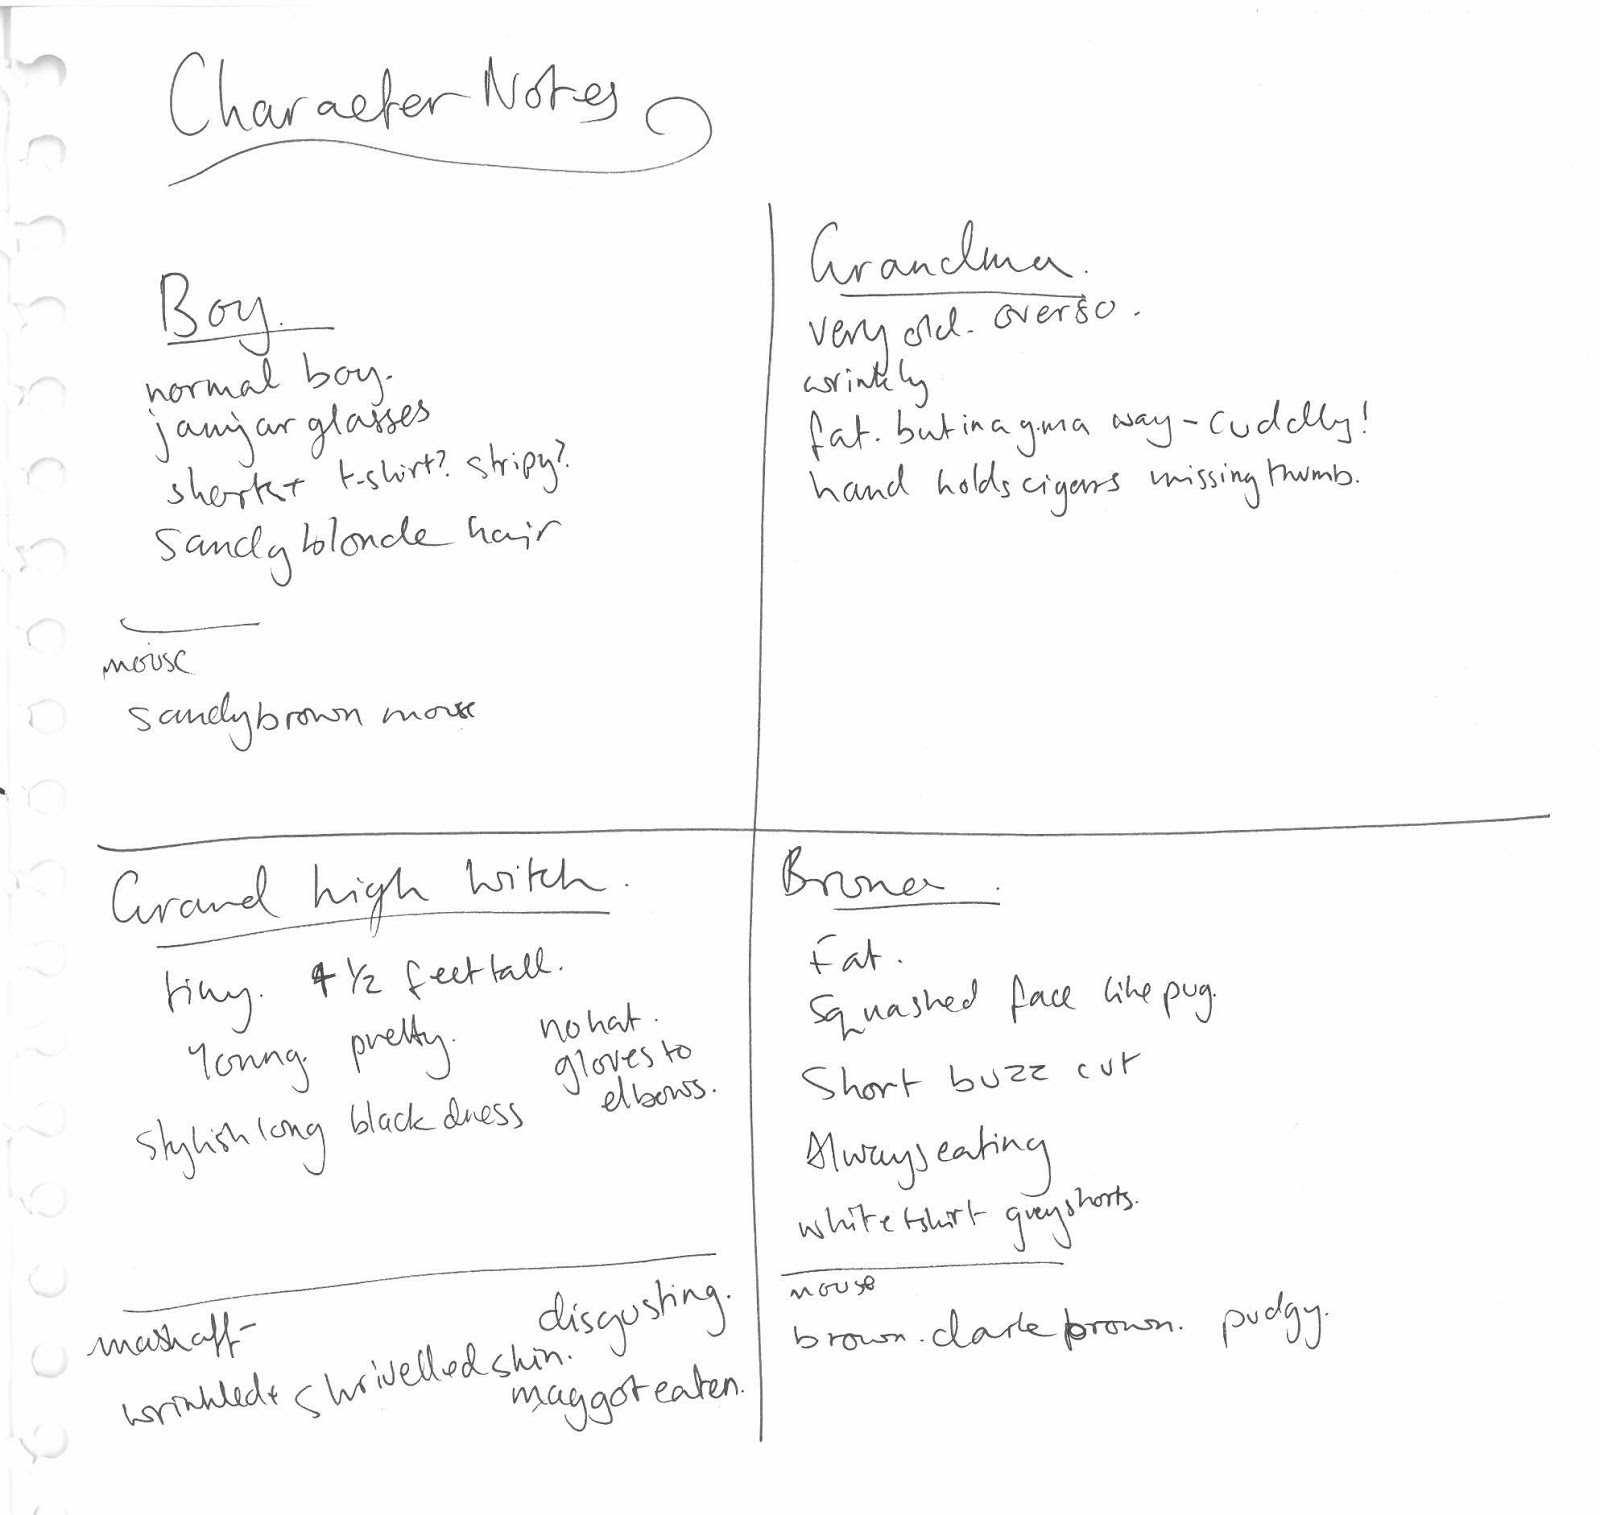 Character Notes
Boy.
normal boy.
jamjar glasses
shorts + t-shirt? stripy?
Sandy blonde hair
mouse
sandy brown mouse
Grandma.
very old. over 80.
wrinkly
fat. but in a g.ma way - cuddly!
hand holds cigars missing thumb.
Grand high witch.
tiny. 4 1/2 feet tall.
Young. pretty. no hat.
gloves to
elbows.
Stylish long black dress
mask off -
disgusting.
wrinkled + shrivelled skin.
maggot eaten.
Bruno.
Fat.
Squashed face like pug.
Short buzz cut
Always eating
white tshirt grey shorts.
mouse
brown. dark brown. pudgy.